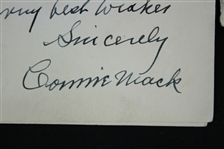 very best wishes
Sincerely
Connie Mack